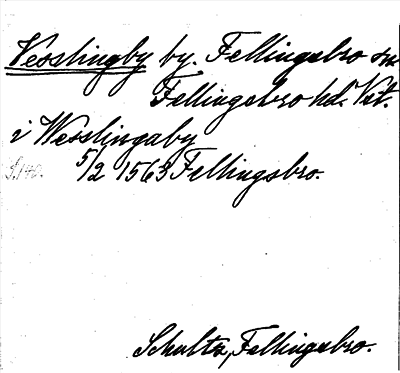 Vesslingby by. Fellingsbro sn.
Fellingsbro hd. Vstl.
i Wesslingaby
5/2 1563 Fellingsbro.
S. 140.
Schultz, Fellingsbro.